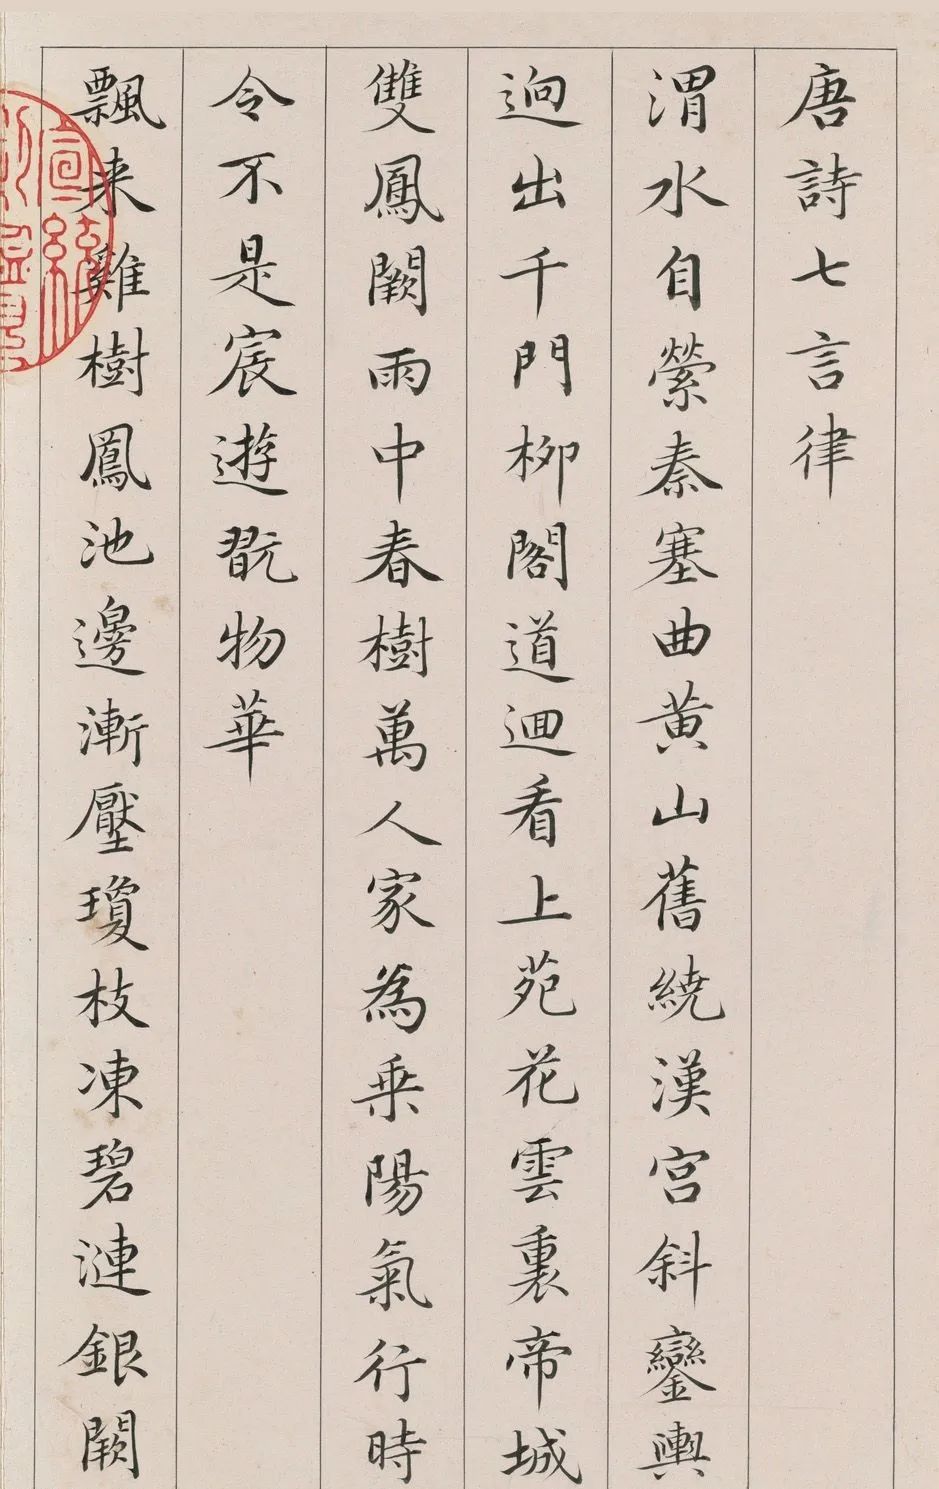 唐詩七言律
渭水自縈秦塞曲黄山舊繞漢宫斜鑾輿
逈出千門柳閣道迴看上苑花雲裏帝城
雙鳳闕雨中春樹萬人家為乗陽氣行時
令不是宸遊翫物華
飄来雞樹鳳池邊漸壓瓊枝凍碧漣銀闕
宣統